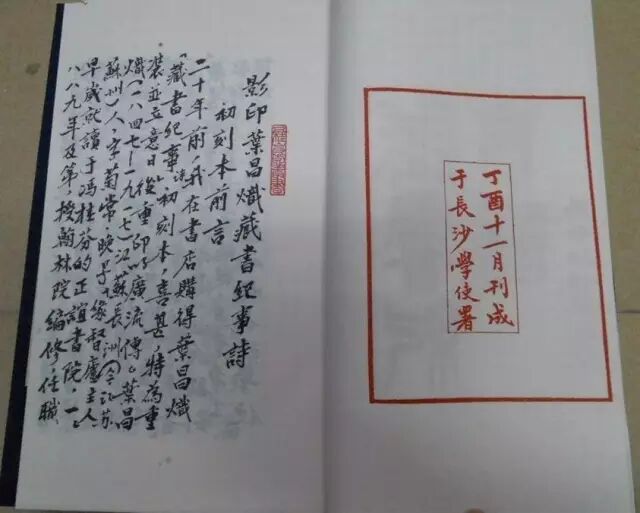 丁酉十一月刊成
于長沙學使署
影印葉昌熾藏書紀事詩
初刻本前言
二十年前,我在書店購得葉昌熾
「藏書紀事詩」初刻本,喜甚,特為重
裝並立意日後重印以廣流傳。葉昌
熾(一八四七—一九一七)江蘇長洲(今江苏
蘇州)人,字菊裳,晚号緣督廬主人
早歲就讀于馮桂芬的正誼書院,一
八八九年及第,授翰林院編修,任職